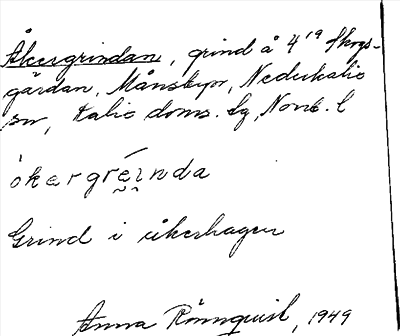 Åkergrindan, grind å 4¹⁹ skogs-
gärdan, Månsbyn, Nederkalix
sn, Kalix doms. lg, Norrb. l
ȯkergre̯i̯nda
Grind i åkerhagen
Anna Rönnquist, 1949